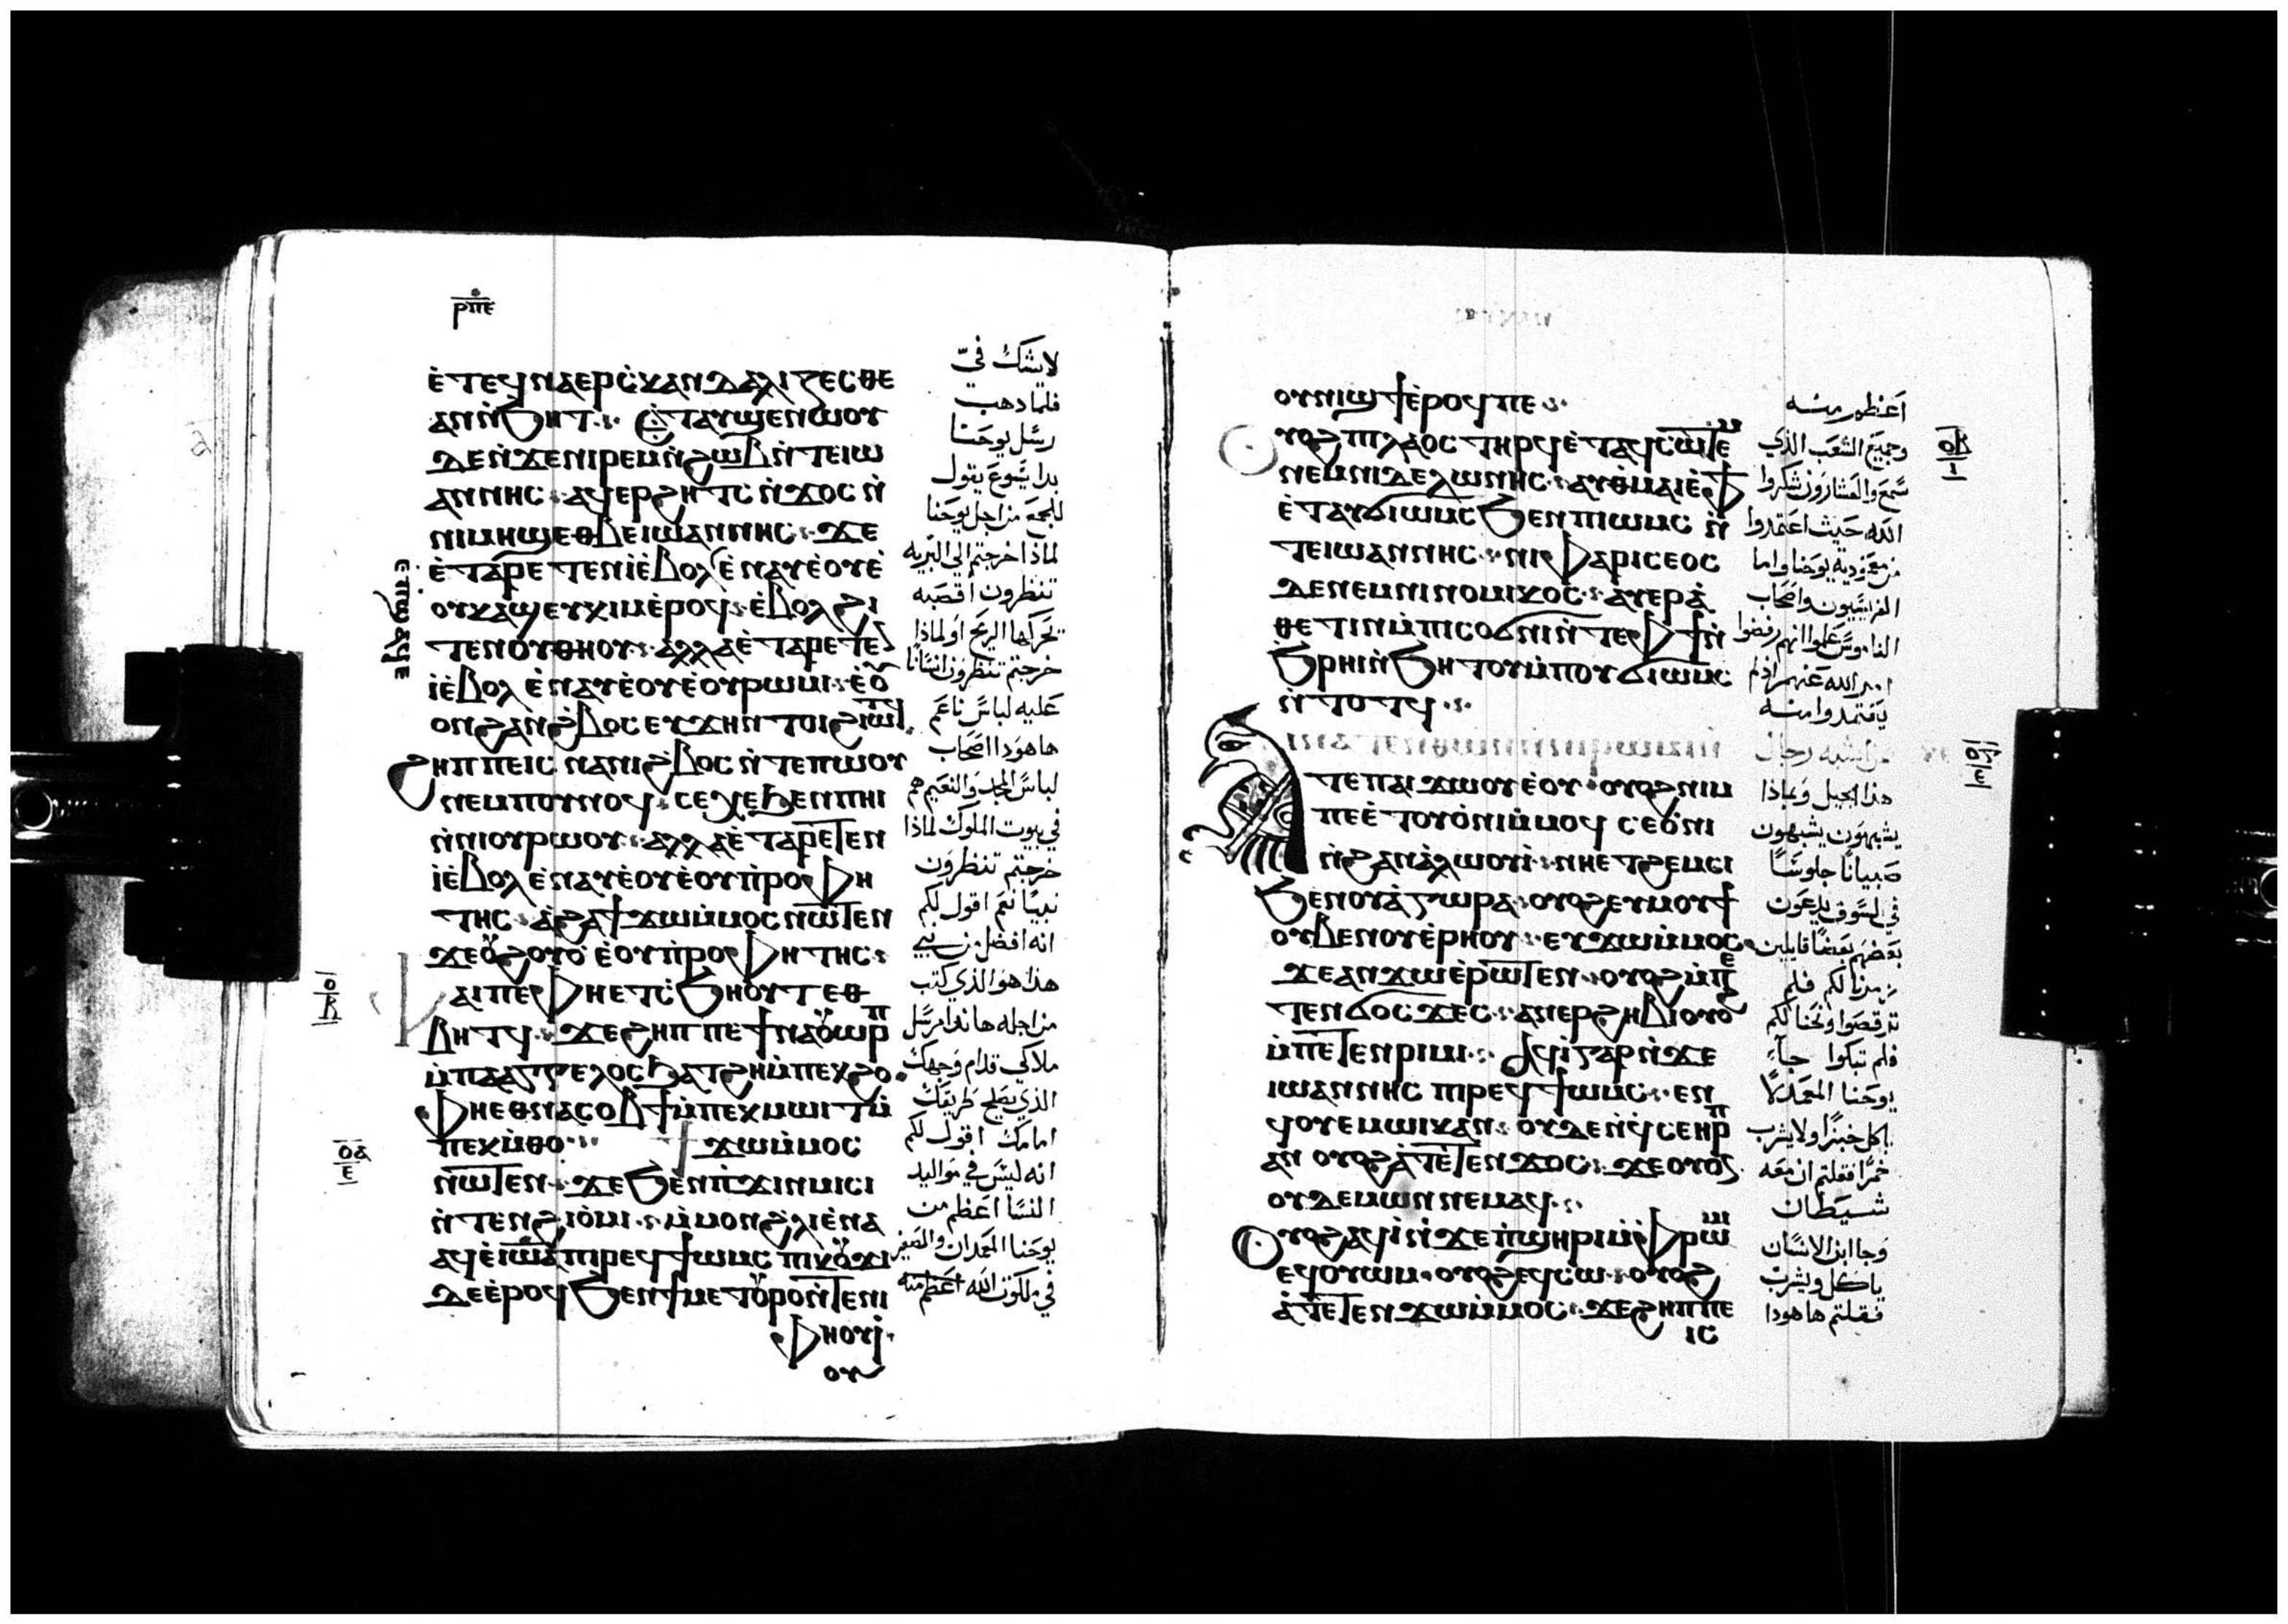 ⲣⲡⲉ
ⲉ̀ⲧⲉϥⲛⲁⲉⲣⲥ̀ⲕⲁⲛⲇⲁⲗⲓⲍⲉⲥⲑⲉ
ⲁⲛⲛ̀ϧⲏⲧ ⲉ̀ⲧⲁⲩϣⲉⲛⲱⲟⲩ
ⲇⲉⲛ̀ϫⲉⲛⲓⲣⲉⲙⲛ̀ϩⲱⲃⲛ̀ⲧⲉⲓⲱ
ⲁⲛⲛⲏⲥ ⲁϥⲉⲣϩⲏⲧⲥ ⲛ̀ϫⲟⲥ ⲛ̀
ⲛⲓⲙⲏϣⲉⲑⲃⲉⲓⲱⲁⲛⲛⲏⲥ ϫⲉ
ⲉ̀ⲧⲁⲣⲉⲧⲉⲛⲓ̀ⲉ̀ⲃⲟⲗⲉ̀ⲛⲁⲩⲉ̀ⲟⲩⲉ̀
ⲟⲩⲕⲁϣⲉⲩⲕⲓⲙⲉ̀ⲣⲟϥ ⲉ̀ⲃⲟⲗϩⲓ
ⲧⲉⲛⲟⲩⲑⲏⲟⲩ ⲁⲗⲗⲁⲉ̀ⲧⲁⲣⲉⲧⲉ
ⲓ̀ⲉ̀ⲃⲟⲗ ⲉ̀ⲛⲁⲩⲉ̀ⲟⲩⲉ̀ⲟⲩⲣⲱⲙⲓ
ⲟⲛϩⲁⲛϩ̀ⲃⲟⲥ ⲉⲩϫⲏⲛ ⲧⲟⲓϩⲓⲱⲧϥ
ϩⲏⲡⲡⲉⲓⲥ ⲛⲁⲛⲓϩ̀ⲃⲟⲥ ⲛ̀ⲧⲉⲡⲱⲟⲩ
ⲛⲉⲙⲡⲟⲩⲛⲟϥ ⲥⲉⲭⲉϧⲉⲛⲡⲏⲓ
ⲛ̀ⲛⲓⲟⲩⲣⲱⲟⲩ ⲁⲗⲗⲁⲉ̀ⲧⲁⲣⲉⲧⲉⲛ
ⲓ̀ⲉ̀ⲃⲟⲗ ⲉ̀ⲛⲁⲩⲉ̀ⲟⲩⲉ̀ⲟⲩⲡ̀ⲣⲟⲫⲏ
ⲧⲏⲥ ⲁ̀ϩⲁ ϯϫⲱⲙ̀ⲙⲟⲥ ⲛⲱⲧⲉⲛ
ϫⲉⲟⲩϩⲟⲩⲟ̀ ⲉ̀ⲟⲩⲡ̀ⲣⲟⲫⲏⲧⲏⲥ
ⲫⲁⲓⲡⲉⲫⲏⲉⲧⲥ̀ϧⲏⲟⲩⲧ ⲉⲑ
ⲃⲏⲧϥ ϫⲉϩⲏⲡⲡⲉϯⲛⲁⲟⲩⲱⲣⲡ
ⲙ̀ⲡⲁⲁⲅⲅⲉⲗⲟⲥϧⲁⲧϩⲏⲙ̀ⲡⲉⲕϩⲟ
ⲫⲏⲉⲑⲛⲁⲥⲟⲃϯⲙ̀ⲡⲉⲕⲙⲱⲓⲧⲙ̀
ⲡⲉⲕⲙ̀ⲑⲟ ϯϫⲱⲙ̀ⲙⲟⲥ
ⲛ̀ⲱⲧⲉⲛ ϫⲉϧⲉⲛⲡ̀ϫⲓⲛⲙⲓⲥⲓ
ⲛ̀ⲧⲉⲛϩⲓⲟ̀ⲙⲓ ⲙ̀ⲙⲟⲛϩⲗⲓⲉ̀ⲛⲁ
ⲁϥⲉ̀ⲓⲱⲁ ⲡⲓⲣⲉϥϯⲱⲙⲥ ⲡⲓⲕⲟⲩϫⲓ
ⲇⲉⲉ̀ⲣⲟϥϧⲉⲛϯⲙⲉⲧⲟⲩⲣⲟⲛ̀ⲧⲉⲛⲓ
ⲫⲏⲟⲩⲓ̀
ⲟⲩ
لا يشك فيّ
فلما ذهب
رسل يوحنا
بدا يسوع يقول
للجمع من اجل يوحنا
لماذا خرجتم الي البريه
تنظرون أقصبه
تحركها الريح او لماذا
خرجتم تنظرون انسانًا
عليه لباس ناعم
ها هودا اصحاب
لباس المجد والنعيم هم
في بيوت الملوك لماذا
خرجتم تنظرون
نبيًا نعم اقول لكم
انه افضل من نبي
هذا هو الذي كتب
من اجله هاندا مرسل
ملاكي قدام وجهك
الذي يصلح طريقك
امامك اقول لكم
انه ليس في مواليد
النسا اعظم من
يوحنا المعمدان والصغير
في ملكوت الله اعظم منه
ⲟⲩⲛⲓϣϯⲉ̀ⲣⲟϥⲡⲉ
ⲟⲩⲟϩⲡⲓⲗⲁⲟⲥ ⲧⲏⲣϥⲉ̀ⲧⲁϥⲥⲱⲧⲉⲙ
ⲛⲉⲙⲛⲓⲧⲉⲗⲱⲛⲏⲥ ⲁⲩⲑⲙⲁⲓⲉ̀ⲫϯ
ⲉ̀ⲧⲁⲩϭⲓⲱⲙⲥϧⲉⲛⲡⲓⲱⲙⲥ ⲛ̀
ⲧⲉⲓⲱⲁⲛⲛⲏⲥ ⲛⲓⲫⲁⲣⲓⲥⲉⲟⲥ
ⲇⲉⲛⲉⲙⲛⲓⲛⲟⲙⲓⲕⲟⲥ ⲁⲩⲉⲣⲁ̀
ⲑⲉⲧⲓⲛⲙ̀ⲡⲓⲥⲟϭⲛⲓⲛ̀ⲧⲉⲫϯⲛ̀
ϧⲣⲏⲓⲛ̀ϧⲏⲧⲟⲩⲙ̀ⲡⲟⲩϭⲓⲱⲙⲥ
ⲛ̀ⲧⲟⲧϥ
ⲧⲉⲡⲁⲓϫⲱⲟⲩⲉ̀ⲟⲩ ⲟⲩⲟϩⲛⲓⲙ
ⲡⲉⲉ̀ⲧⲟⲩⲟ̀ⲛⲓⲙ̀ⲙⲟϥ ⲥⲉⲟ̀ⲛⲓ
ⲛ̀ϩⲁⲛⲁ̀ⲗⲱⲟⲩⲓ̀ ⲛⲏⲉⲧϩⲉⲙⲥⲓ
ϧⲉⲛⲟⲩⲁ̀ⲅⲱⲣⲁ ⲟⲩⲟϩⲉⲩⲙⲟⲩϯ
ⲟⲩⲃⲉⲛⲟⲩⲉ̀ⲣⲏⲟⲩ ⲉⲩϫⲱⲙ̀ⲙⲟⲥ
ϫⲉⲁⲛϫⲱⲉ̀ⲣⲱⲧⲉⲛ ⲟⲩⲟϩⲙ̀ⲡⲉ
ⲧⲉⲛϭⲟⲥϫⲉⲥ ⲁⲛⲉⲣϩⲏⲃⲓⲟⲩⲟϩ
ⲙ̀ⲡⲉⲧⲉⲛⲣⲓⲙⲓ ⲁϥⲓ̀ⲅⲁⲣⲛ̀ϫⲉ
ⲓⲱⲁⲛⲛⲏⲥ ⲡⲓⲣⲉϥϯⲱⲙⲥ ⲉⲛ
ϥⲟⲩⲉⲙⲱⲓⲕⲁⲛ ⲟⲩⲇⲉⲛ̀ϥⲥⲉⲏⲣⲡ
ⲁⲛ ⲟⲩⲟϩⲁ̀ⲧⲉⲧⲉⲛϫⲟⲥ ϫⲉⲟⲩⲟⲛ
ⲟⲩⲇⲉⲙⲱⲛⲛⲉⲙⲁϥ
ⲟⲩⲟϩⲁϥⲓ̀ⲛ̀ϫⲉⲡ̀ϣⲏⲣⲓⲙ̀ⲫⲣⲱⲙⲓ
ⲉϥⲟⲩⲱⲙ ⲟⲩⲟϩⲉϥⲥⲱ ⲟⲩⲟϩ
ⲁ̀ⲧⲉⲧⲉⲛϫⲱⲙ̀ⲙⲟⲥ ϫⲉϩⲏⲡⲡⲉ
ⲓⲥ
اعظم منه
وجميع الشعب الذي
سمع والعشارون شكروا
الله حيث اعتمدوا
من معمودية يوحنا واما
الفريسيون واصحاب
الناموس علموا انهم رفضوا
امر الله عنهم اذ لم
يعتمدوا منه
هذا الجيل وبماذا
يشبهون يشبهون
صبيانًا جلوسًا
في السوق يدعون
بعضهم بعضًا قايلين
زمرنا لكم فلم
ترقصوا ونحنا لكم
فلم تبكوا جآء
يوحنا المعمدان لا
ياكل خبزًا ولا يشرب
خمرًا فقلتم ان معه
شيطان
وجا ابن الانسان
ياكل ويشرب
فقلتم ها هودا